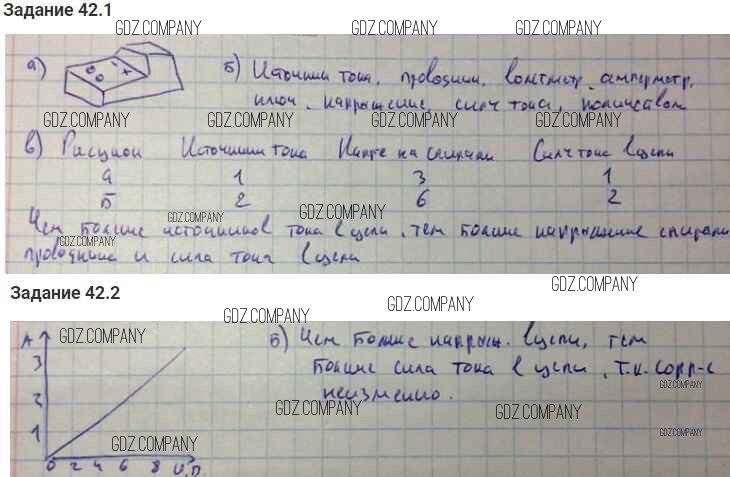 Задание 42.1
GDZ.COMPANY GDZ.COMPANY GDZ.COMPANY
а) б) Источники тока, проводники, вольтметр, амперметр,
ключ, напряжение, сила тока,
GDZ.COMPANY GDZ.COMPANY GDZ.COMPANY GDZ.COMPANY
в) Рисунок Источники тока Напр на спирали Сила тока в цепи
а 1 3 1
Б 2 6 2
GDZ.COMPANY GDZ.COMPANY
Чем больше источников тока в цепи, тем больше напряжение спирали
GDZ.COMPANY
проводника и сила тока в цепи
Задание 42.2
GDZ.COMPANY GDZ.COMPANY GDZ.COMPANY
А
3
2
1
0 2 4 6 8 U,
GDZ.COMPANY
GDZ.COMPANY
Б) Чем больше напряж. в цепи, тем
больше сила тока в цепи, т.к. сопр-е
GDZ.COMPANY
неизменно.
GDZ.COMPANY GDZ.COMPANY
GDZ.COMPANY